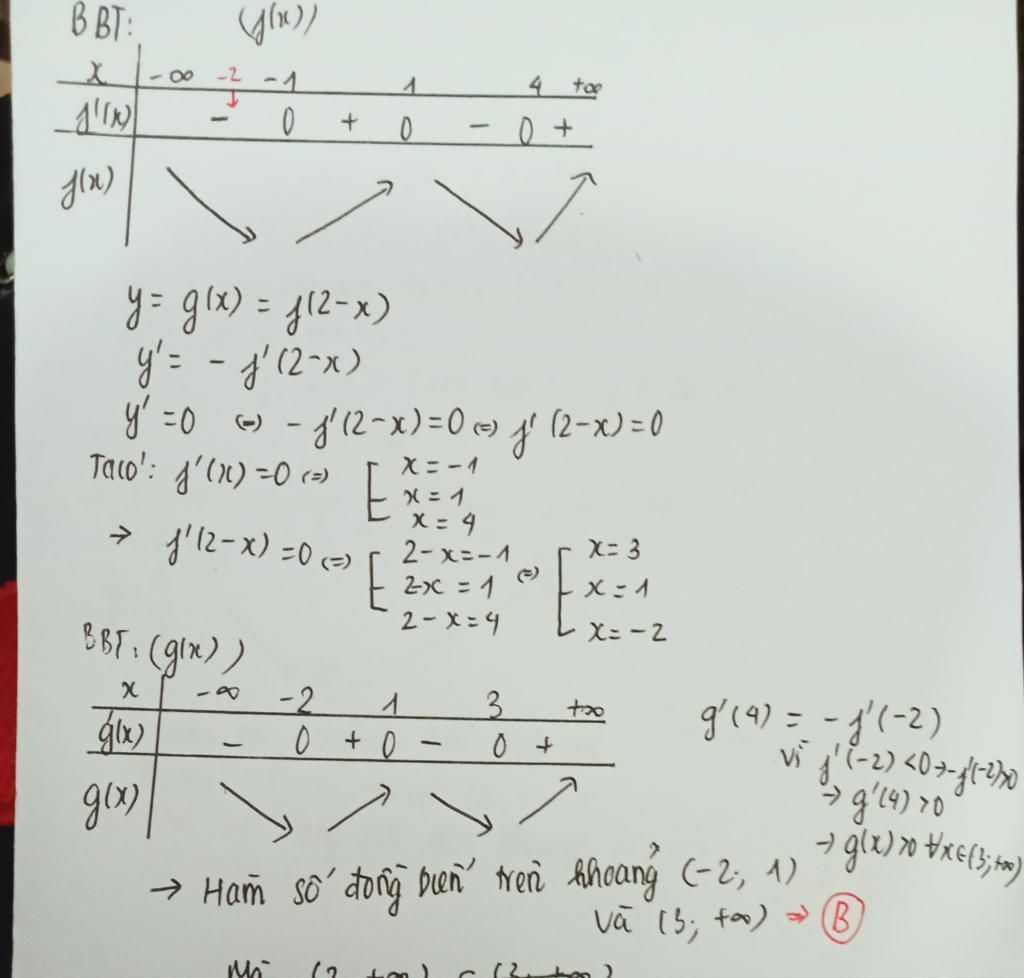 BBT: (f(x))
x -∞ -2 -1 1 4 +∞
f'(x) - 0 + 0 - 0 +
f(x)
y = g(x) = f(2-x)
y' = - f'(2-x)
y' = 0 (=) - f'(2-x) = 0 (=) f'(2-x) = 0
Taco': f'(x) = 0 (=) [ x = -1
x = 1
x = 4
→ f'(2-x) = 0 (=) [ 2-x = -1 (=) [ x = 3
2-x = 1 x = 1
2-x = 4 x = -2
BBT: (g(x))
x -∞ -2 1 3 +∞
g'(x) - 0 + 0 - 0 +
g(x)
g'(4) = - f'(-2)
vì f'(-2) < 0 → -f'(-2) > 0
→ g'(4) > 0
→ g(x) > 0 ∀x ∈ (3; +∞)
→ Hàm số đồng biến trên khoảng (-2; 1)
và (3; +∞) → B